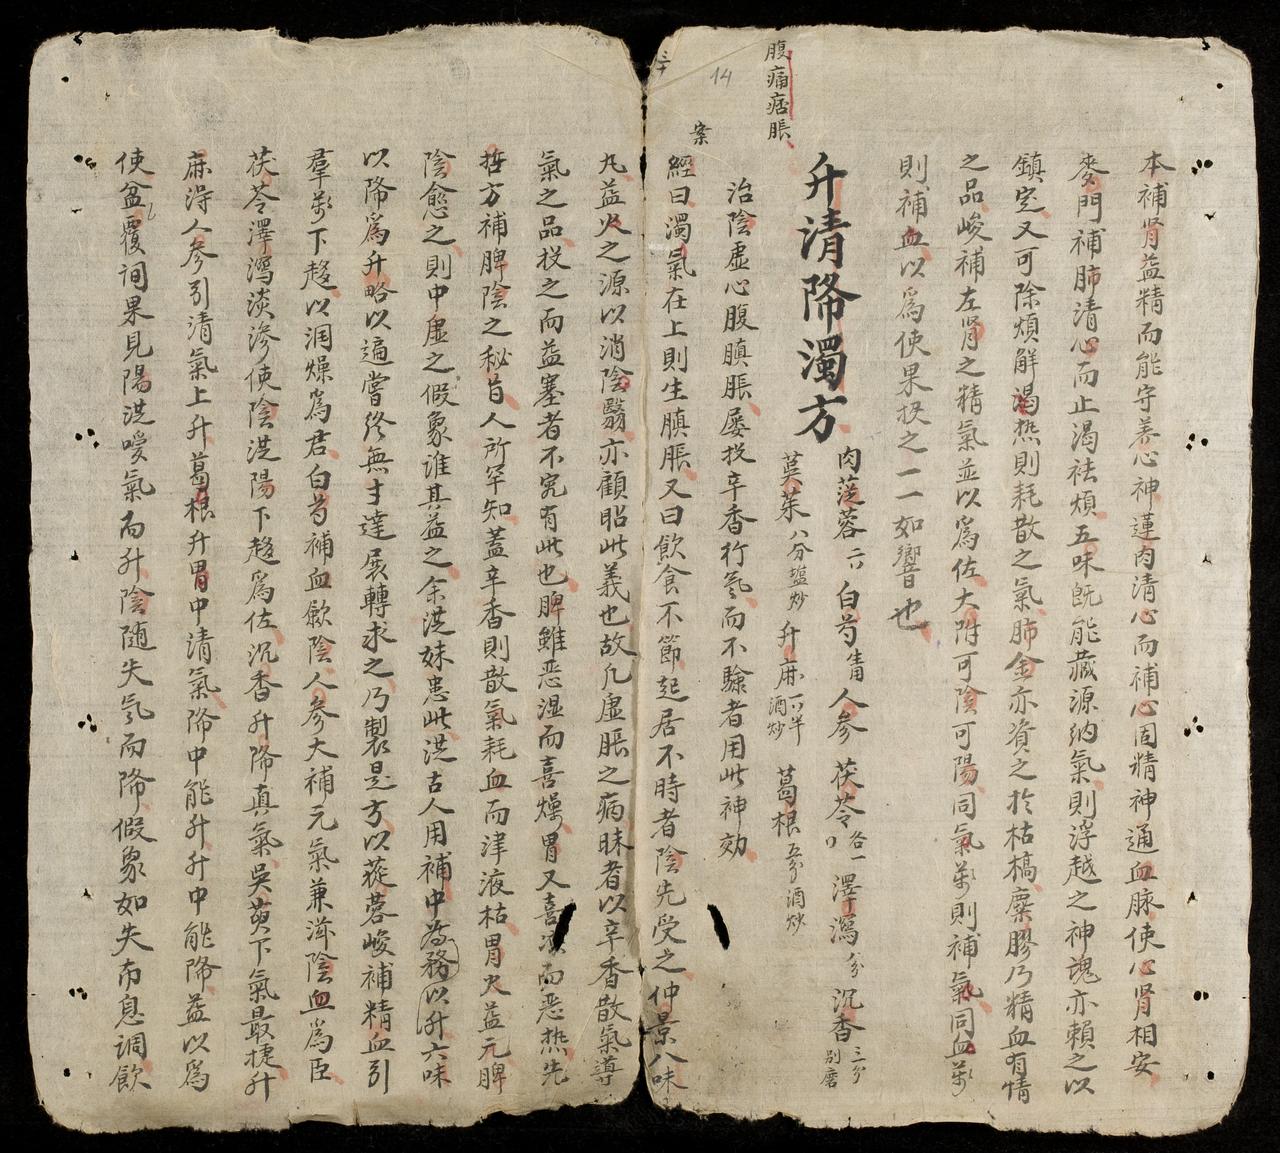 本補肾益精而能守养心神蓮肉清心而補心固精神通血脉使心肾相安
麥門補肺清心而止渴袪煩五味旣能藏源納氣則浮越之神魂亦賴之以
鎮定又可除煩解渴热則耗散之氣肺金亦資之於枯槁麋膠乃精血有情
之品峻補左肾之精氣並以爲佐大附可陰可陽同氣药則補氣同血药
則補血以爲使果投之一一如響也
腹痛痞脹
升清降濁方
肉蓯蓉 白芍 人参 茯苓各一 澤瀉 沉香三分别磨
萸茱八分塩炒 升麻 酒炒 葛根五分酒炒
治陰虚心腹䐜脹屡投辛香行氣而不驗者用此神効
案
14
經曰濁氣在上則生䐜脹又曰飲食不節起居不時者陰先受之仲景八味
丸益火之源以消陰翳亦顧眙此義也故凡虚脹之病昧者以辛香散氣導
氣之品投之而益塞者不究有此也脾雖恶湿而喜燥胃又喜 而恶热先
哲方補脾陰之秘旨人所罕知蓋辛香則散氣耗血而津液枯胃火益元脾
陰愈之則中虚之假象谁其益之余洪妹患此洪古人用補中為務以升六味
以降爲升略以遍嘗终無寸達展轉求之乃製是方以蓯蓉峻補精血引
羣药下趍以润燥爲君白芍補血歛陰人参大補元氣兼滋陰血爲臣
茯苓澤瀉淡渗使陰洪陽下趍爲佐沉香升降真氣吳萸下氣最捷升
麻淂人参引清氣上升葛根升胃中清氣降中能升升中能降益以爲
使盆覆间果見陽洪嗳氣而升陰随失气而降假象如失而息調飲